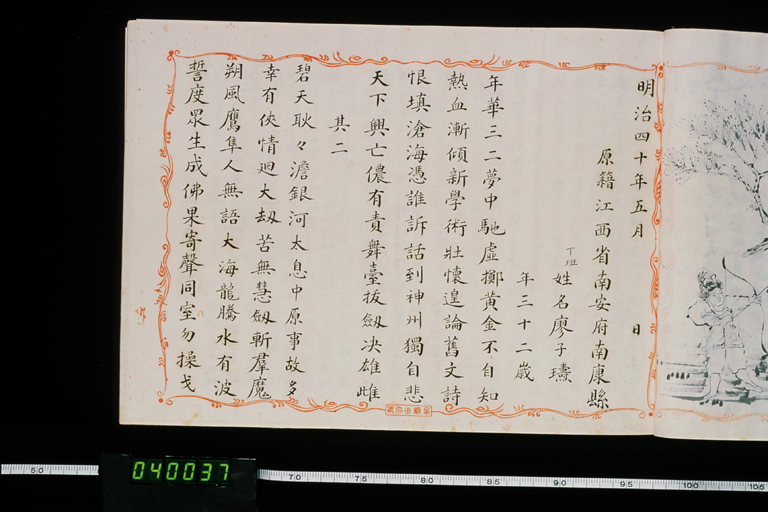 明治四十年五月　日
原籍江西省南安府南康縣
丁班 姓名廖子璹
年三十二歲
年華三二夢中馳虛擲黃金不自知
熱血漸傾新學術壯懷遑論舊文詩
恨填滄海憑誰訴話到神州獨自悲
天下興亡儂有責舞臺拔劔決雄雌
其二
碧天耿々澹銀河太息中原事故多
幸有俠情迴大劫苦無慧劔斬羣魔
朔風鷹隼人無語大海龍騰水有波
誓度眾生成佛果寄聲同室勿操戈
040037
5.0 7.0 7.5 8.0 8.5 9.0 9.5 10.0 10.5